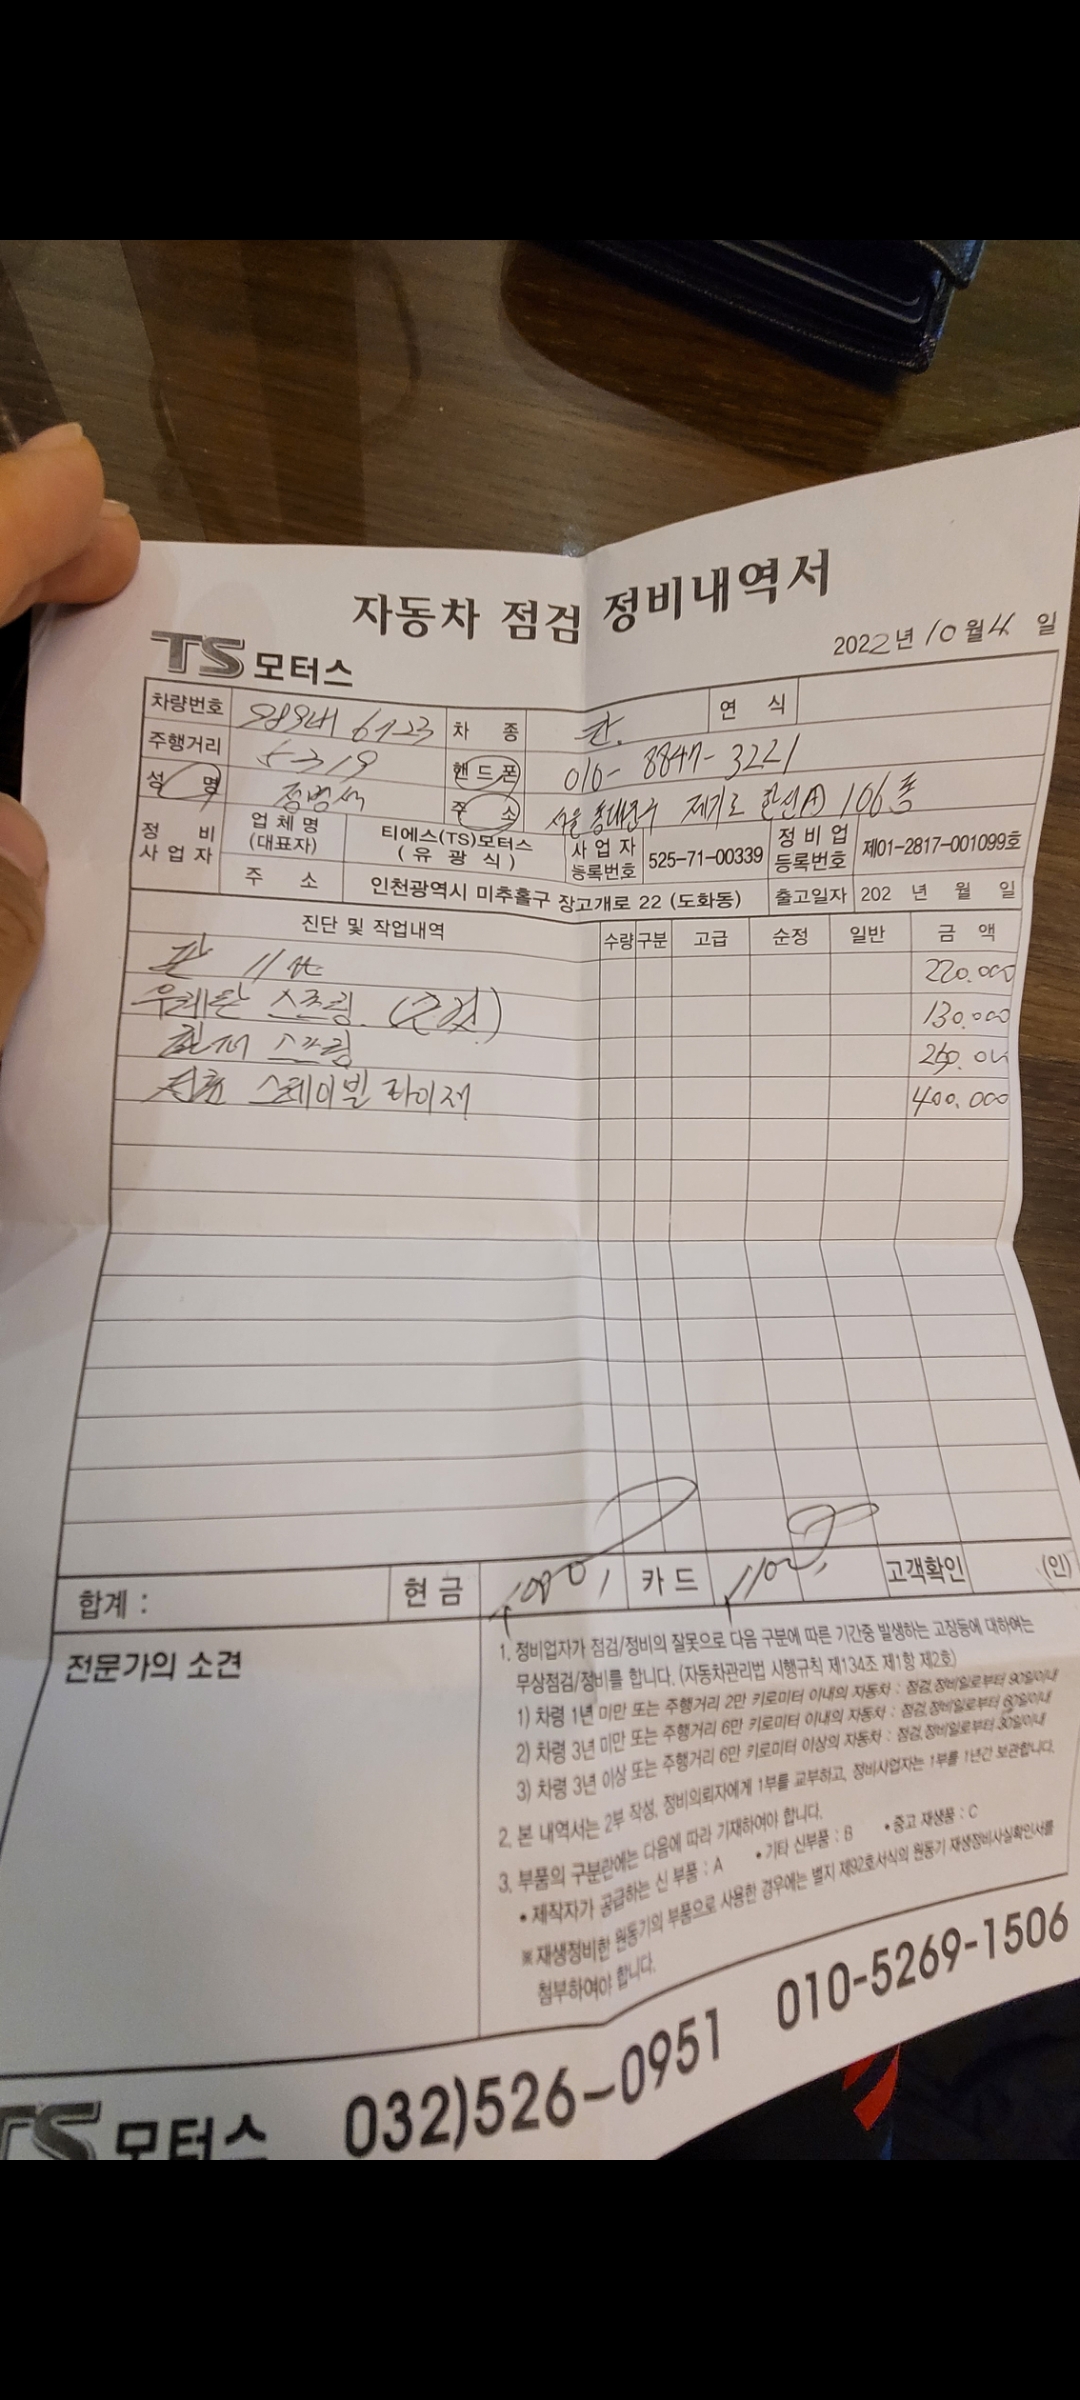 자동차 점검 정비내역서
TS 모터스
2022년 10월 4 일
차량번호 6723 차 종 연 식
주행거리 5319 핸드폰 010-8847-3221
성 명 정범석 주 소 서울 동대문구 제기로 한신(A) 106동
정 비 사업자 업체명 (대표자) 티에스(TS)모터스 (유광식) 사업자 등록번호 525-71-00339 정비업 등록번호 제01-2817-001099호
주 소 인천광역시 미추홀구 장고개로 22 (도화동) 출고일자 202 년 월 일
진단 및 작업내역 수량 구분 고급 순정 일반 금 액
판 220.000
우레탄 스프링 130.000
스프링
스테이빌라이저 400.000
합계 : 현금 카드 고객확인 (인)
전문가의 소견
1. 정비업자가 점검/정비의 잘못으로 다음 구분에 따른 기간중 발생하는 고장등에 대하여는
무상점검/정비를 합니다. (자동차관리법 시행규칙 제134조 제1항 제2호)
1) 차령 1년 미만 또는 주행거리 2만 키로미터 이내의 자동차 : 점검,정비일로부터 90일이내
2) 차령 3년 미만 또는 주행거리 6만 키로미터 이내의 자동차 : 점검,정비일로부터 60일이내
3) 차령 3년 이상 또는 주행거리 6만 키로미터 이상의 자동차 : 점검,정비일로부터 30일이내
2. 본 내역서는 2부 작성, 정비의뢰자에게 1부를 교부하고, 정비사업자는 1부를 1년간 보관합니다.
3. 부품의 구분란에는 다음에 따라 기재하여야 합니다.
• 제작자가 공급하는 신 부품 : A • 기타 신부품 : B • 중고 재생품 : C
※ 재생정비한 원동기의 부품으로 사용한 경우에는 별지 제92호서식의 원동기 재생정비사실확인서를
첨부하여야 합니다.
TS 모터스 032)526-0951 010-5269-1506